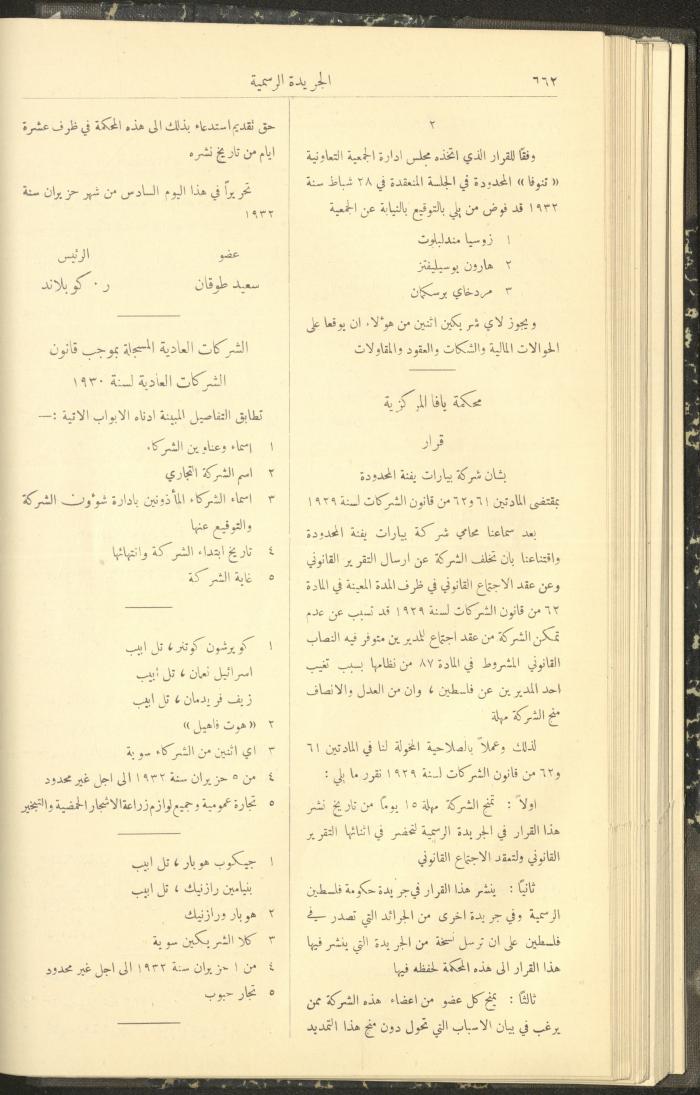 ٦٦٢
الجريدة الرسمية
٢
وفقًا للقرار الذي اتخذه مجلس ادارة الجمعية التعاونية
« تنوفا » المحدودة في الجلسة المنعقدة في ٢٨ شباط سنة
١٩٣٢ قد فوض من يلي بالتوقيع بالنيابة عن الجمعية
١ زوسيا مندلبلوت
٢ هارون يوسيليفتز
٣ مردخاي برسكمان
ويجوز لاي شريكين اثنين من هؤلاء ان يوقعا على
الحوالات المالية والشكات والعقود والمقاولات
محكمة يافا المركزية
قرار
بشان شركة بيارات يفنة المحدودة
بمقتضى المادتين ٦١ و٦٢ من قانون الشركات لسنة ١٩٢٩
بعد سماعنا محامي شركة بيارات يفنة المحدودة
واقتناعنا بان تخلف الشركة عن ارسال التقرير القانوني
وعن عقد الاجتماع القانوني في ظرف المدة المعينة في المادة
٦٢ من قانون الشركات لسنة ١٩٢٩ قد تسبب عن عدم
تمكن الشركة من عقد اجتماع للمديرين متوفر فيه النصاب
القانوني المشروط في المادة ٨٧ من نظامها بسبب تغيب
احد المديرين عن فلسطين ، وان من العدل والانصاف
منح الشركة مهلة
لذلك وعملاً بالصلاحية المخولة لنا في المادتين ٦١
و٦٢ من قانون الشركات لسنة ١٩٢٩ نقرر ما يلي :
اولاً : تمنح الشركة مهلة ١٥ يومًا من تاريخ نشر
هذا القرار في الجريدة الرسمية لتحضر في اثنائها التقرير
القانوني ولتعقد الاجتماع القانوني
ثانيًا : ينشر هذا القرار في جريدة حكومة فلسطين
الرسمية وفي جريدة اخرى من الجرائد التي تصدر في
فلسطين على ان ترسل نسخة من الجريدة التي ينشر فيها
هذا القرار الى هذه المحكمة لحفظه فيها
ثالثًا : يمنح كل عضو من اعضاء هذه الشركة ممن
يرغب في بيان الاسباب التي تحول دون منح هذا التمديد
حق تقديم استدعاء بذلك الى هذه المحكمة في ظرف عشرة
ايام من تاريخ نشره
تحريراً في هذا اليوم السادس من شهر حزيران سنة
١٩٣٢
عضو الرئيس
سعيد طوقان ر٠ كوبلاند
الشركات العادية المسجلة بموجب قانون
الشركات العادية لسنة ١٩٣٠
تطابق التفاصيل المبينة ادناه الابواب الاتية :—
١ اسماء وعناوين الشركاء
٢ اسم الشركة التجاري
٣ اسماء الشركاء المأذونين بادارة شؤون الشركة
والتوقيع عنها
٤ تاريخ ابتداء الشركة وانتهائها
٥ غاية الشركة
١ كويرشون كوتنر ، تل ابيب
اسرائيل نعمان ، تل ابيب
زيف فريدمان ، تل ابيب
٢ « هوت فاهيل »
٣ اي اثنين من الشركاء سوية
٤ من ٥ حزيران سنة ١٩٣٢ الى اجل غير محدود
٥ تجارة عمومية وجميع لوازم زراعة الاشجار الحمضية والتبخير
١ جيكوب هوبار ، تل ابيب
بنيامين رازنيك ، تل ابيب
٢ هوبار ورازنيك
٣ كلا الشريكين سوية
٤ من ١ حزيران سنة ١٩٣٢ الى اجل غير محدود
٥ تجار حبوب